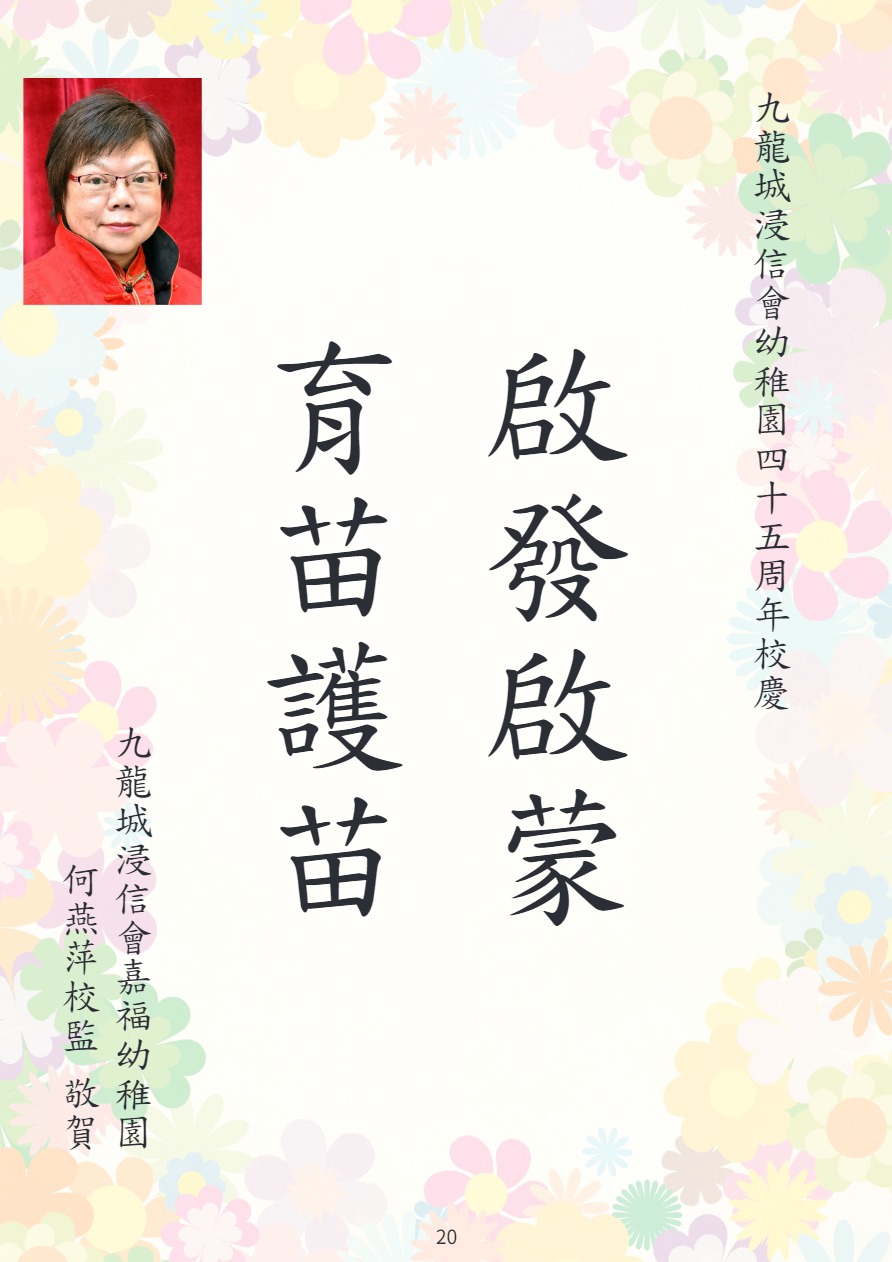 九龍城浸信會幼稚園四十五周年校慶
啟發啟蒙
育苗護苗
九龍城浸信會嘉福幼稚園
何燕萍校監 敬賀
20